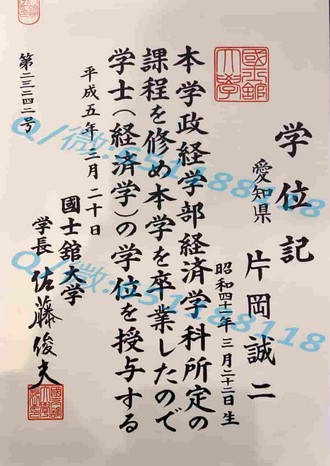 学位記
愛知県
片岡誠二
昭和四十一年 三月二十二日生
本学政経学部経済学科所定の
課程を修め本学を卒業したので
学士(経済学)の学位を授与する
平成五年三月二十日
國士舘大学
学長 佐藤俊夫
Q/微:551188118
Q/微:551188118